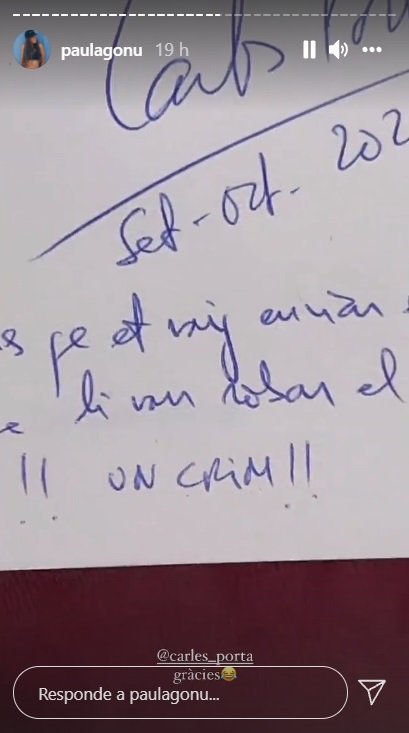 paulagonu 19 h
Carles
Set-Oct- 202
et vaig enviar
li van robar el
!! UN CRIM!!
@carles_porta
gràcies😂
Responde a paulagonu...